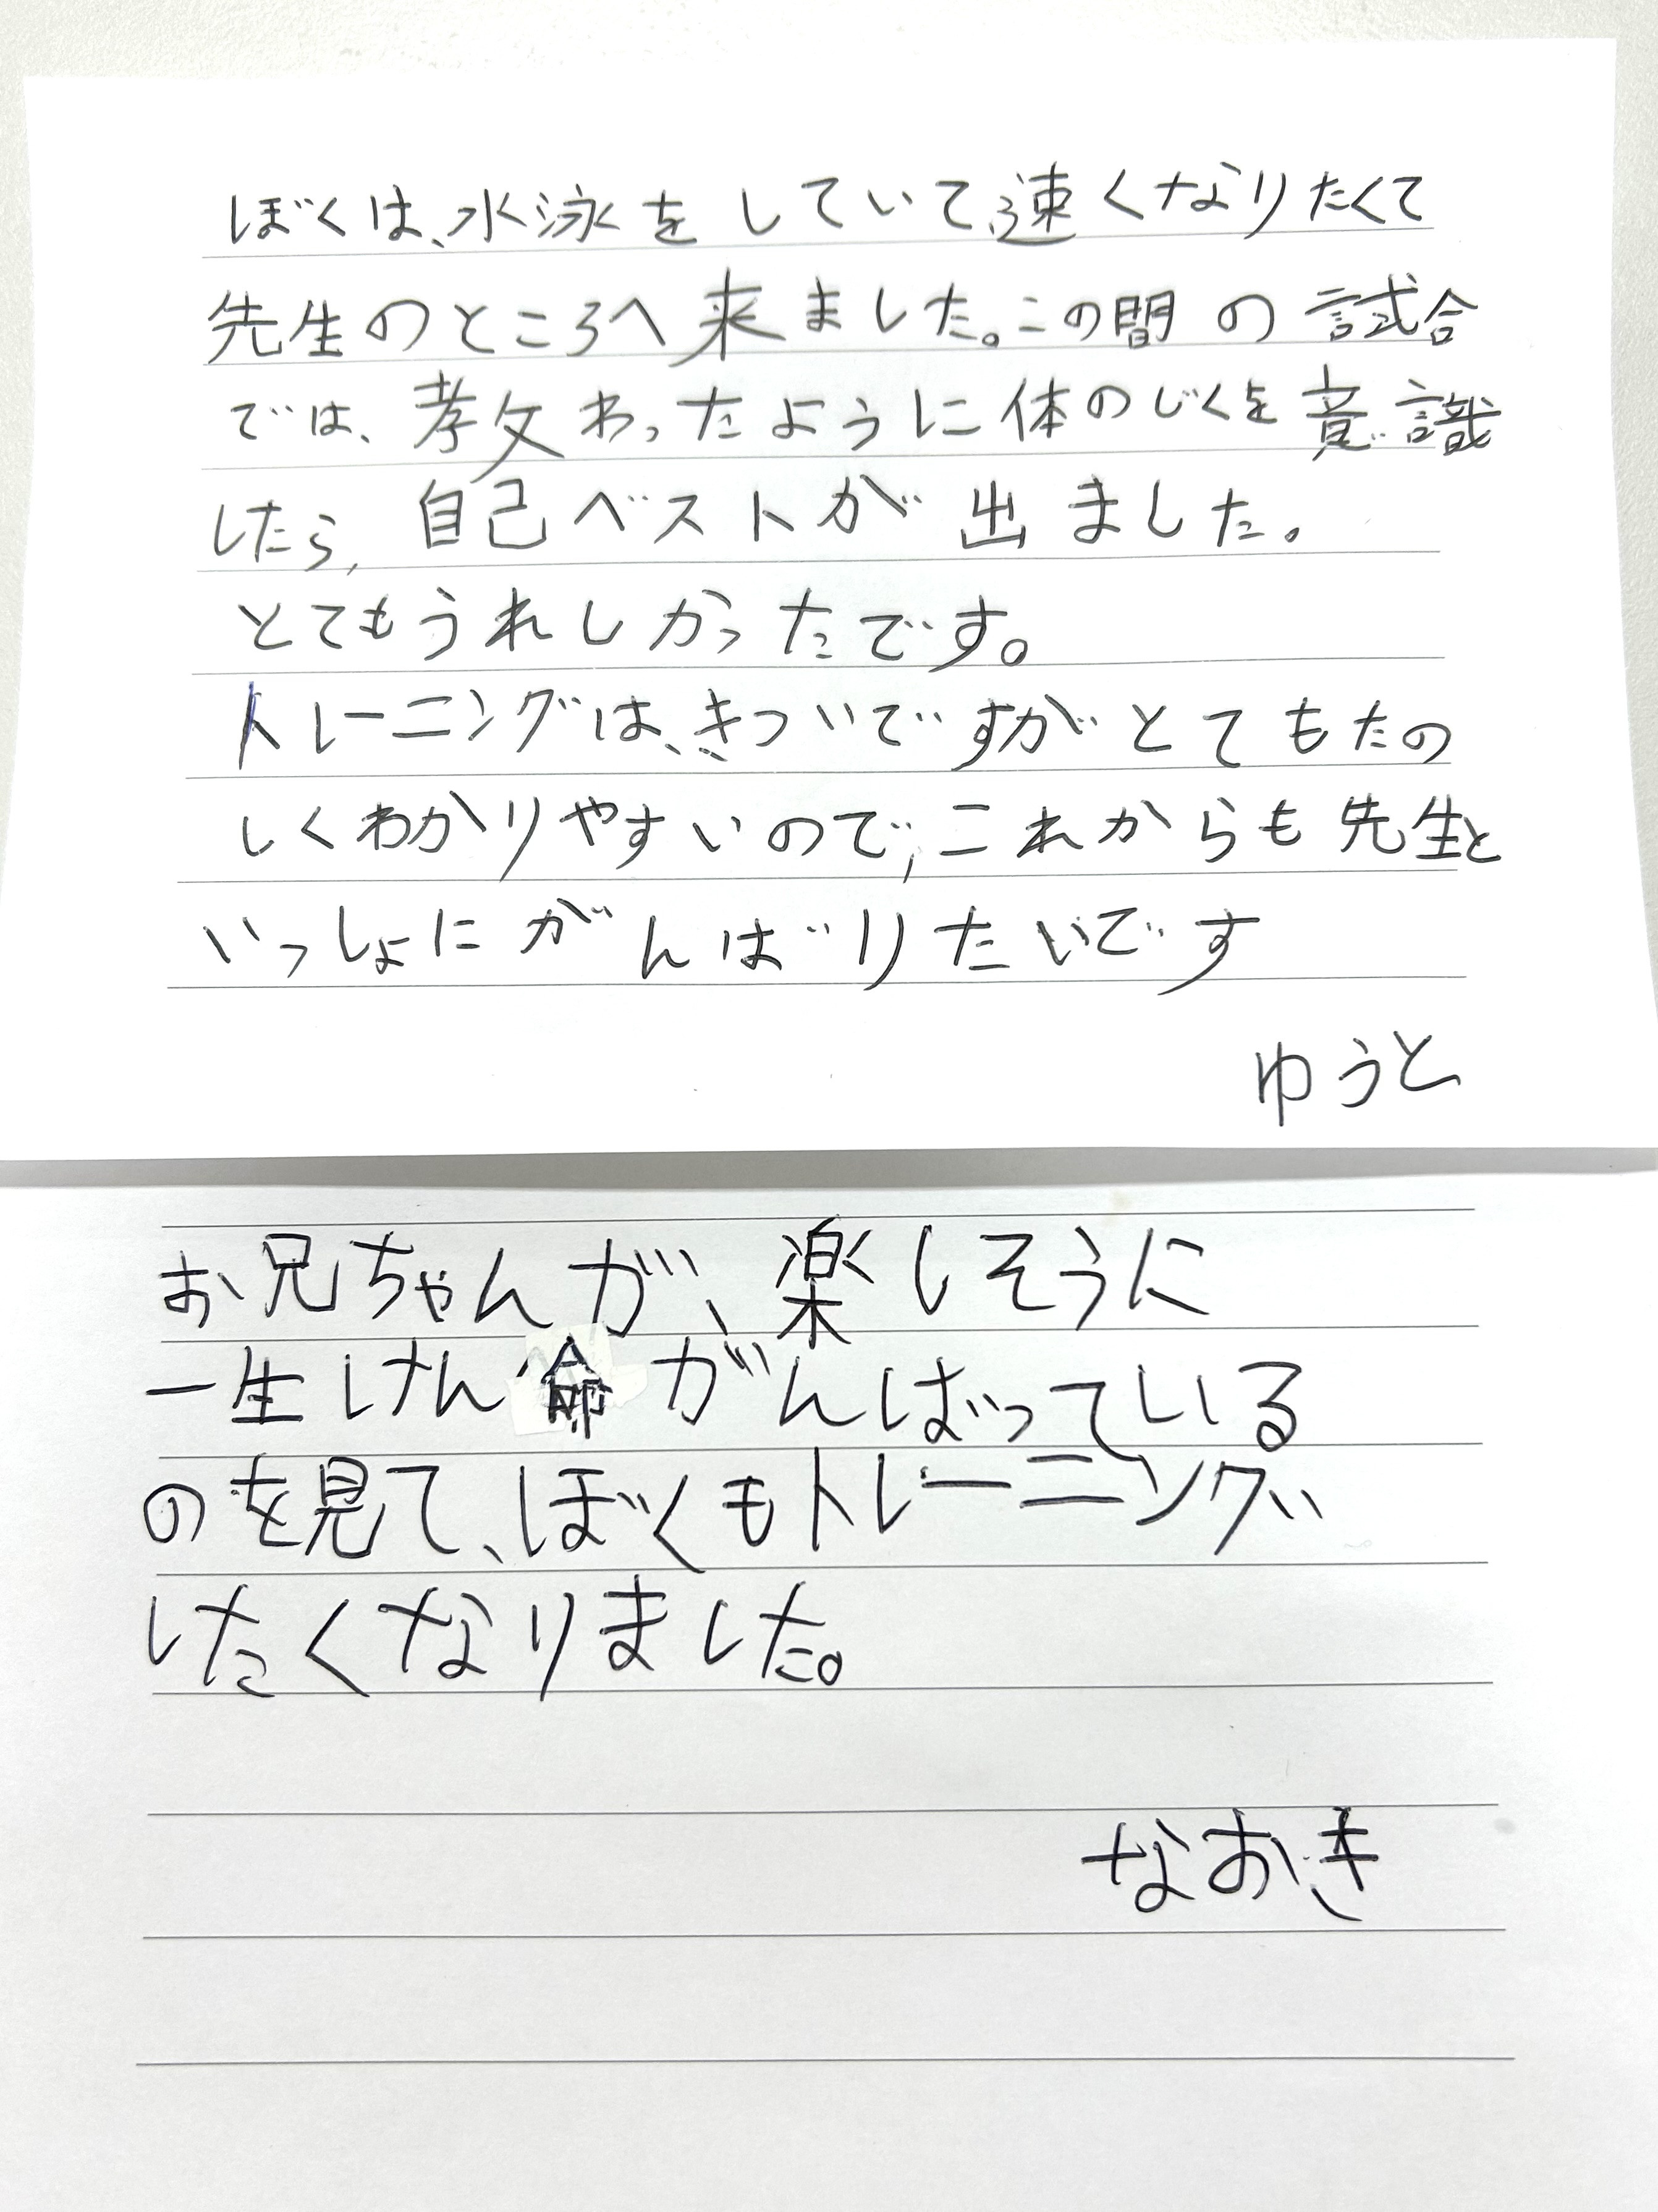 ぼくは、水泳をしていて速くなりたくて
先生のところへ来ました。この間の試合
では、教わったように体のじくを意識
したら、自己ベストが出ました。
とてもうれしかったです。
トレーニングは、きついですがとてもたの
しくわかりやすいので、これからも先生と
いっしょにがんばりたいです
ゆうと
お兄ちゃんが、楽しそうに
一生けん命がんばっている
のを見て、ぼくもトレーニング
したくなりました。
なおき